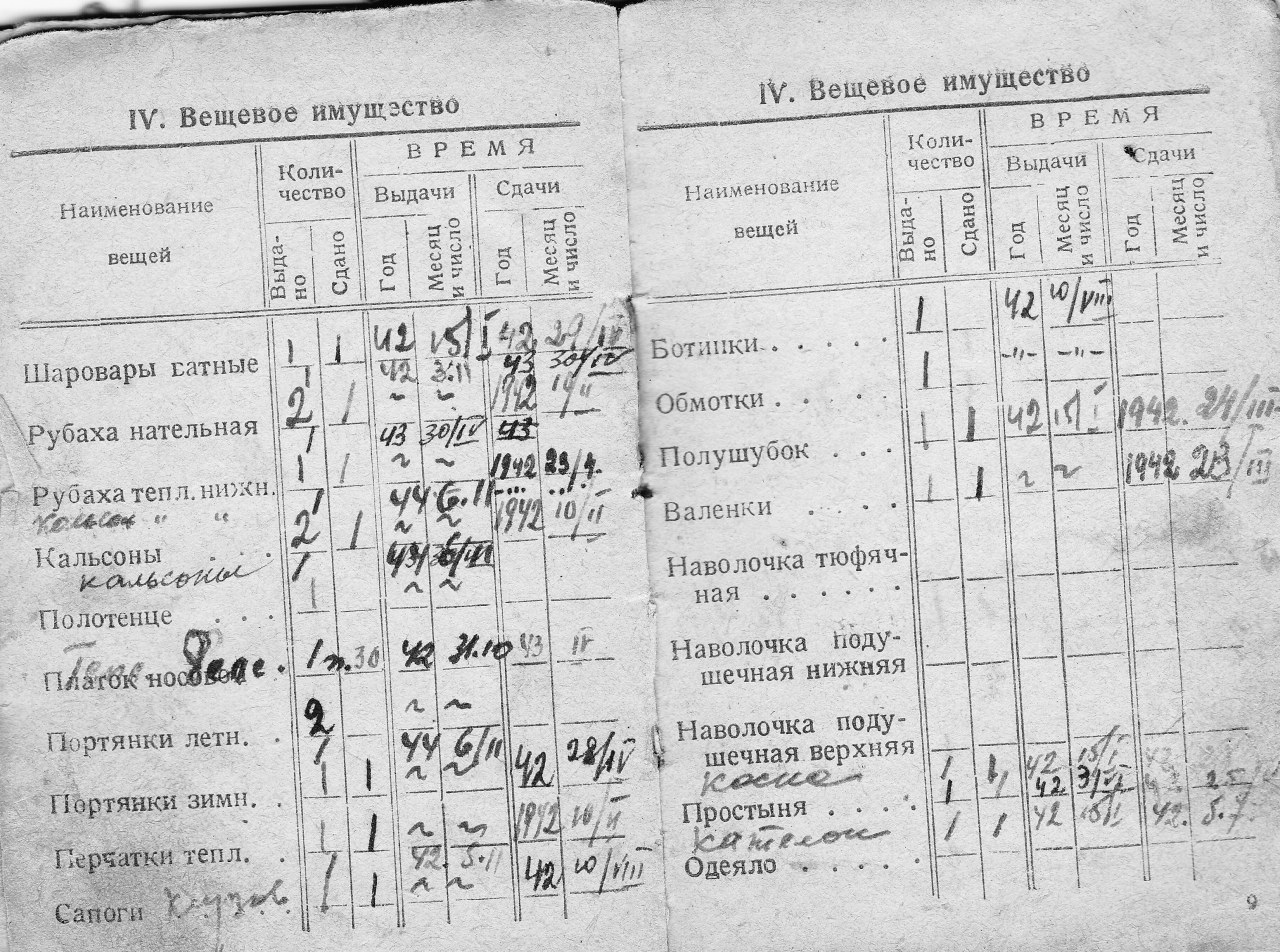 IV. Вещевое имущество
Наименование вещей
Коли-
чество
ВРЕМЯ
Выдачи
Сдачи
Выда-
но
Сдано
Год
Месяц
и число
Год
Месяц
и число
1 1 42 15/I 42 29/IV
Шаровары ватные
1 42 3.11 43 30/IV
2 1 ~ ~ 1942
Рубаха нательная
1 43 30/IV 43
1 1 ~ ~ 1942
Рубаха тепл. нижн.
1 44 6.11
" "
2 1 ~ ~ 1942 10/II
Кальсоны . . .
кальсоны
1 43
Полотенце . . .
1 ~ ~
Платок носовой
1 п. 30 42 31.10 43 IV
2 ~ ~
Портянки летн. .
1 44 6/II
1 1 ~ ~ 42 28/IV
Портянки зимн. .
1 1 ~ ~ 1942 10/II
Перчатки тепл. .
1 42. 5.11
1 1 ~ ~ 42 10/VIII
Сапоги
IV. Вещевое имущество
Наименование
вещей
Коли-
чество
ВРЕМЯ
Выдачи
Сдачи
Выда-
но
Сдано
Год
Месяц
и число
Год
Месяц
и число
1 42 10/VIII
Ботинки . . . . .
1 -"- -"-
Обмотки . . . . .
1 1 42 15/I 1942. 24/III
Полушубок . . .
1 1 ~ ~ 1942 23/III
Валенки . . . .
Наволочка тюфяч-
ная . . . . . .
Наволочка поду-
шечная нижняя
Наволочка поду-
шечная верхняя
каска 1 1 42 15/I 42
1 1 42
Простыня . . . .
кателок 1 1 42 15/I 42. 5.7
Одеяло . . . .
9